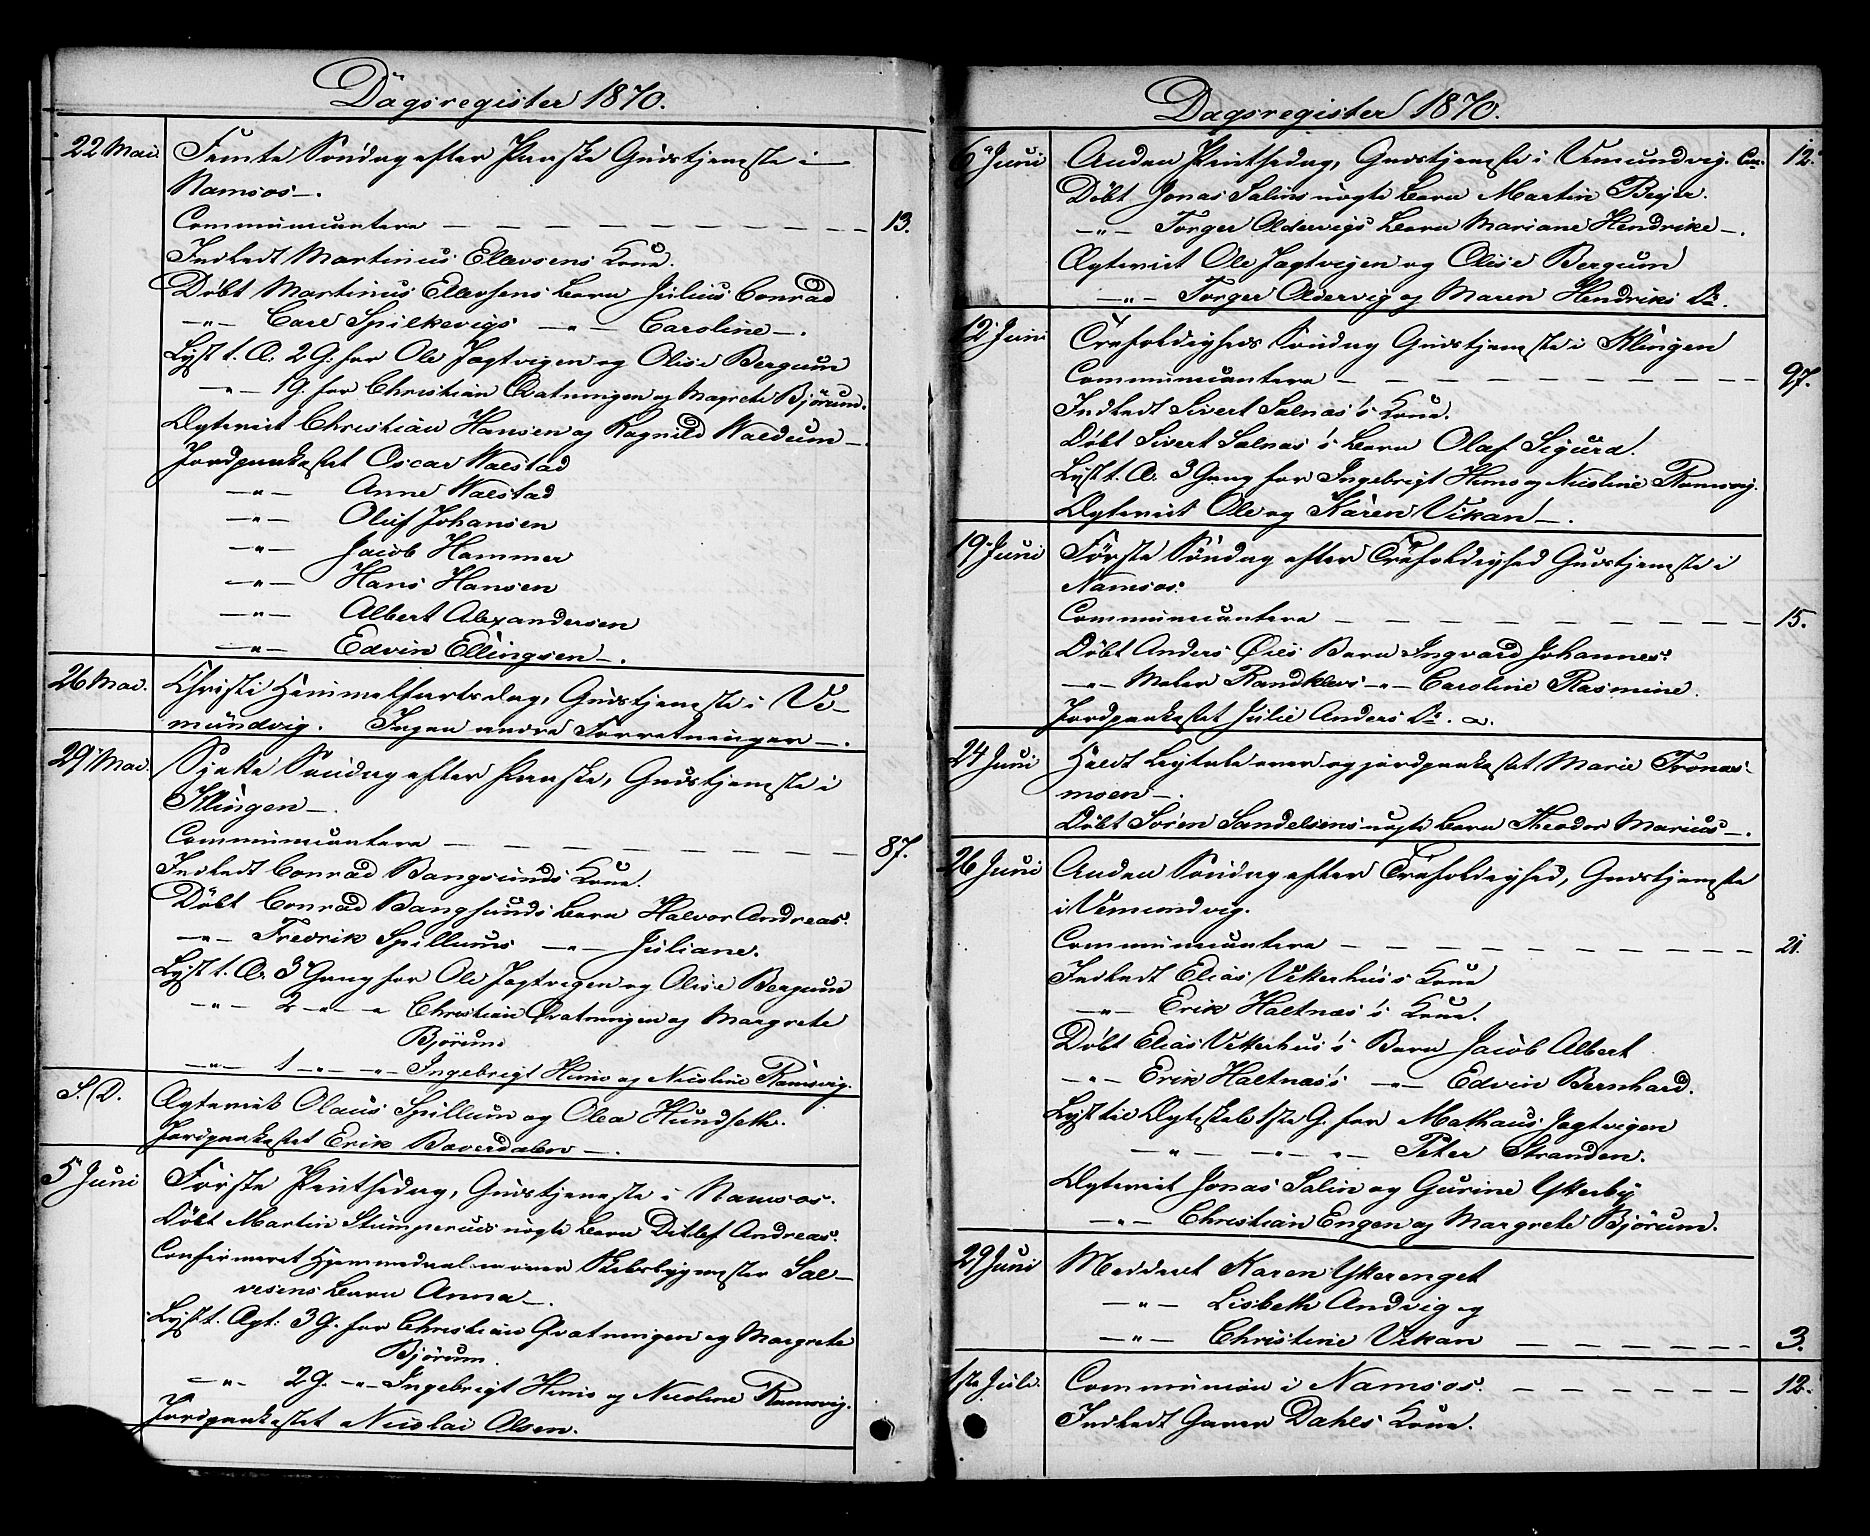 Dagsregister 1870.
22 Mai Femte Søndag efter Paaske Gudstjeneste i
Namsos.
Communicantere — — — 13.
Indledt Martinus Ellevsens Kone.
Døbt Martinus Ellevsens Barn Julius Conrad
—„— Carl Spilkevigs —„— Caroline.
Lyst t. Æ. 2 G. for Ole Jagtvigen og Olise Bergum
—„— 1 G. for Christian Qvatningen og Magrete Björum.
Ægteviet Christian Hansen og Ragnild Waldum
Jordpaakastet Oscar Walstad
—„— Anne Walstad
—„— Oluf Johansen
—„— Jacob Hammer
—„— Hans Hansen
—„— Albert Alexandersen
—„— Edvin Ellingsen.
26 Mai. Christi Himmelfartsdag, Gudstjeneste i Ve-
mundvig. Ingen andre Forretninger.
29 Mai. Sjette Søndag efter Paaske, Gudstjeneste i
Klingen.
Communicantere — — — 87.
Indledt Conrad Bangsunds Kone.
Døbt Conrad Bangsunds Barn Halvor Andreas.
—„— Fredrik Spillums —„— Juliane.
Lyst t. Æ. 3 Gang for Ole Jagtvigen og Olise Bergum
—„— 2 —„— „ Christian Qvatningen og Margrete
Björum
—„— 1 —„— „ Ingebrigt Himo og Nicoline Ramsvig.
S. D. Ægteviet Olaus Spillum og Olea Hundseth.
Jordpaakastet Erik Baverdalen.
5 Juni Første Pintsedag, Gudstjeneste i Namsos.
Døbt Martin Stumperud uægte Barn Ditlef Andreas.
Confirmeret Skibsbygmester Sal-
vesens Barn Anna.
Lyst t. Ægt: 3 G. for Christian Qvatningen og Margrete
Björum.
—„— 2 G. —„— Ingebrigt Himo og Nicoline Ramsvig.
Jordpaakastet Nicolai Olsen.
Dagsregister 1870.
6 Juni Anden Pintsedag, Gudstjeneste i Vemundvig. Com. 12.
Døbt Jonas Salins uægte Barn Martin Beyer.
—„— Torger Oldervigs Barn Mariane Hendrike.
Ægteviet Ole Jagtvigen og Olise Bergum
—„— Torger Oldervig og Maren Hendriks Dr.
12 Juni Trefoldigheds Søndag Gudstjeneste i Klingen
Communicantere — — — 97.
Indledt Sivert Salnas's Kone.
Døbt Sivert Salnas's Barn Olaf Sigurd.
Lyst t. Æ. 3 Gang for Ingebrigt Himo og Nicoline Ramsvig.
Ægteviet Ole og Karen Vikan.
19 Juni Første Søndag efter Trefoldighed Gudstjeneste i
Namsos.
Communicantere — — — 15.
Døbt Anders Øies Barn Ingvard Johannes.
—„— Maler Randklevs —„— Caroline Rasmine.
Jordpaakastet Julie Anders Dr.
24 Juni Holdt Ligtale over og jordpaakastet Marie Tronæs-
moen.
Døbt Søren Sandelsens uægte Barn Theodor Marius.
26 Juni Anden Søndag efter Trefoldighed, Gudstjeneste
i Vemundvig.
Communicantere — — — 21.
Indledt Elias Vetterhus's Kone
—„— Erik Haltnæs's Kone.
Døbt Elias Vetterhus's Barn Jacob Albert
—„— Erik Haltnæs's —„— Edvin Bernhard.
Lyst til Ægteskab 1ste G. for Mathæus Jagtvigen
—„— —„— „— Peter Stranden.
Ægteviet Jonas Salin og Gurine Ytterby
—„— Christian Engen og Margrete Björum.
29 Juni Meddeelt Karen Ytterenget
—„— Lisbeth Andvig og
—„— Christine Vikan — — — 3.
1ste Juli. Communion i Namsos. — — — 12.
Indledt Garver Dahls Kone.